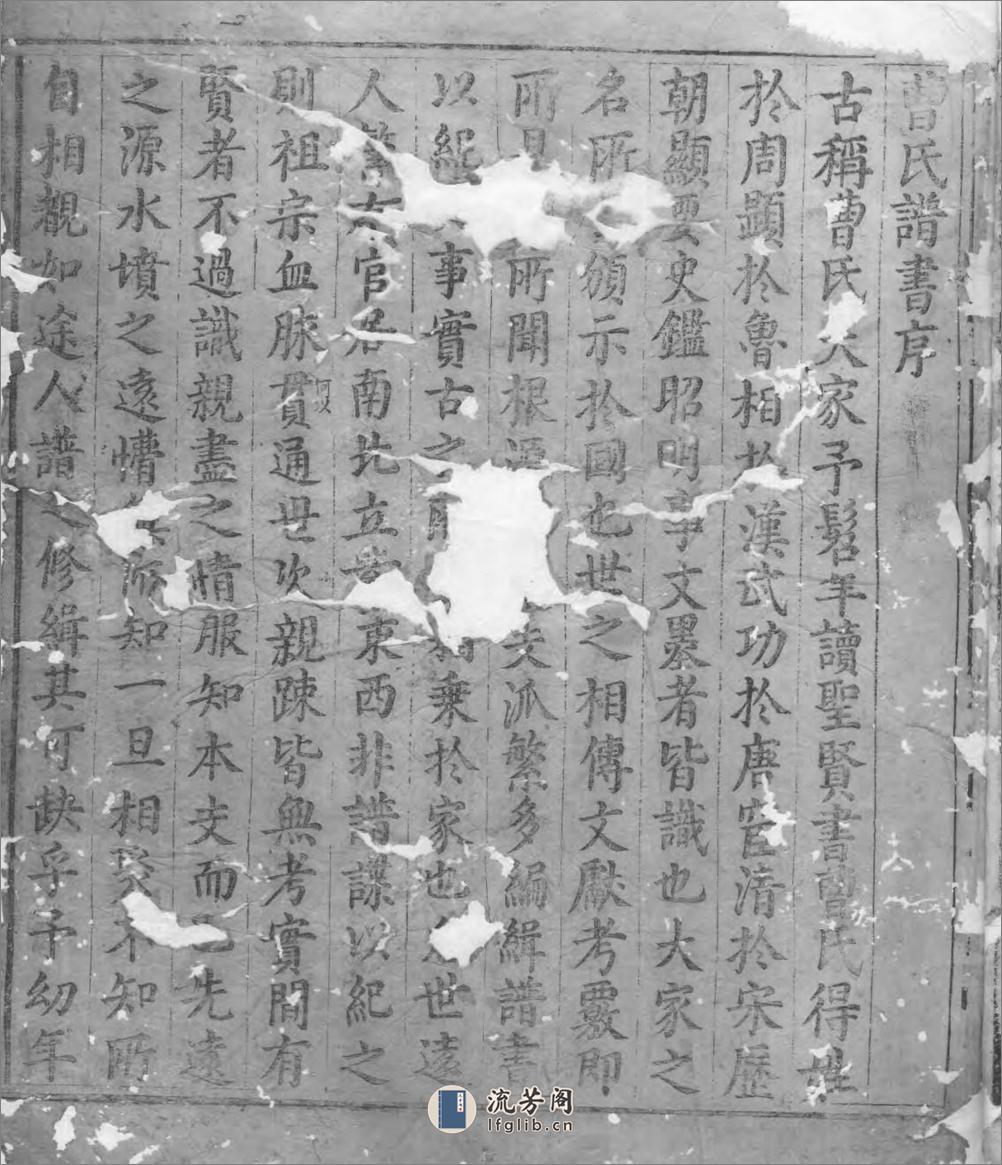 曹氏譜書序
古稱曹氏大家予髫年讀聖賢書曹氏得姓
於周顯於魯相於漢武功於唐宦清於宋歷
朝顯要史鑑昭明事文墨者皆識也大家之
名所 頒示於國也世之相傳文獻考覈即
所見所聞根源 失派繁多編緝譜書
以紀 事實古之 乗於家也 世遠
人 官居南北立 東西非譜諜以紀之
則祖宗血脉貫通世次親踈皆無考實間有
賢者不過識親盡之情服知本支而已先遠
之源水墳之遠懵 所知一旦相 不知所
自相觀如途人譜之修緝其可缺乎予幼年
流芳阁
lfglib.cn